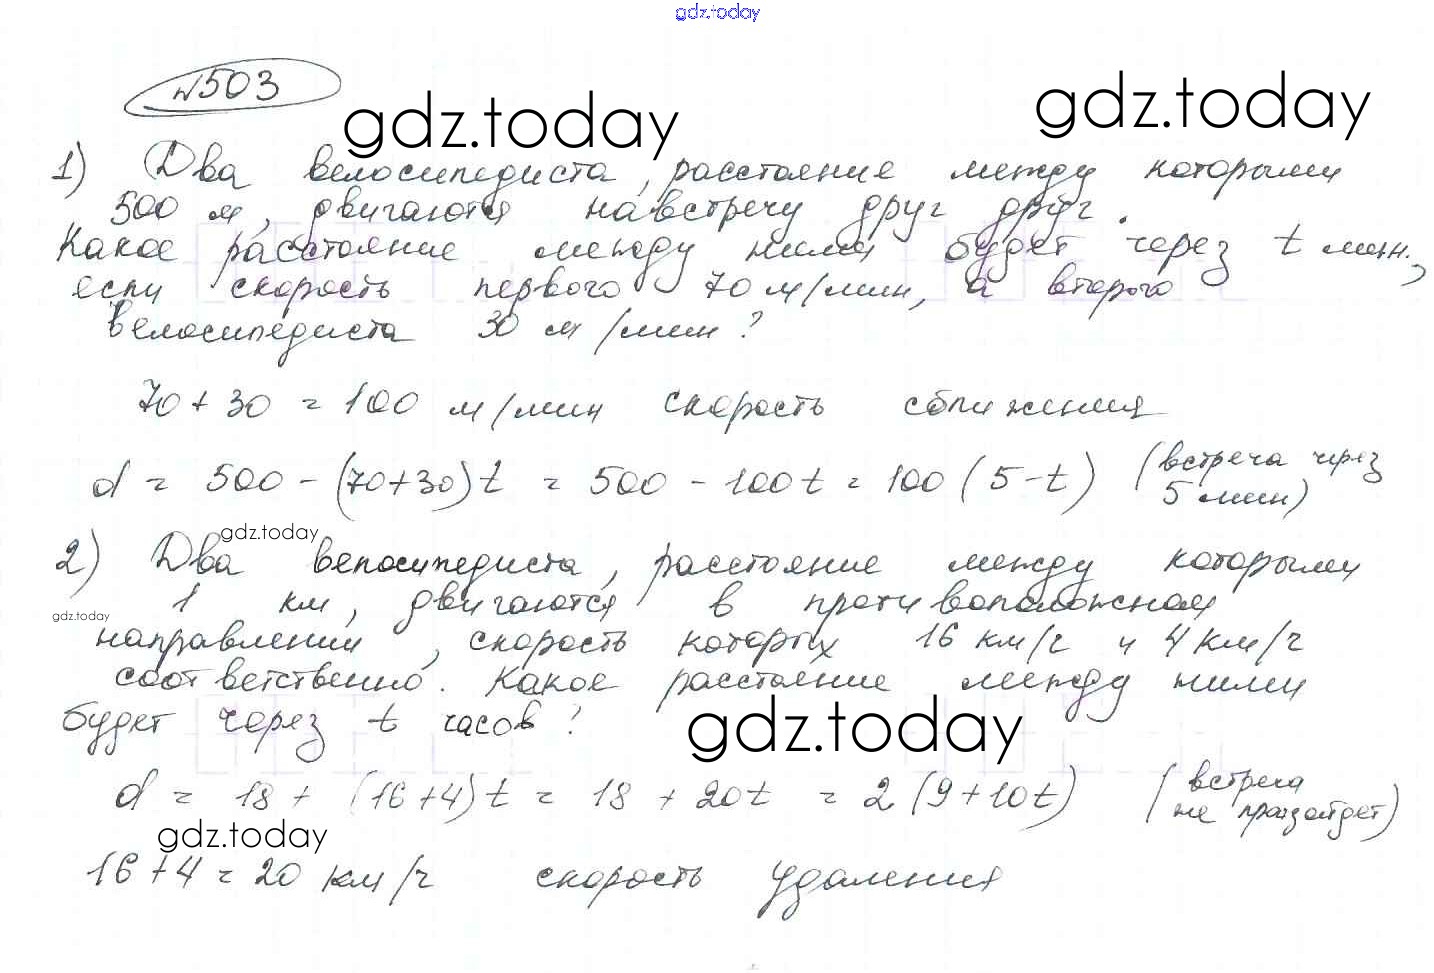 gdz.today
№503
gdz.today
gdz.today
1) Два велосипедиста, расстояние между которыми
500 м, двигаются навстречу друг друг.
Какое расстояние между ними будет через t мин.,
если скорость первого 70 м/мин, а второго
велосипедиста 30 м/мин?
70 + 30 = 100 м/мин скорость сближения
d = 500 - (70+30)t = 500 - 100t = 100 (5-t) (встреча через
5 мин)
gdz.today
2) Два велосипедиста, расстояние между которыми
gdz.today
1 км, двигаются в противоположном
направлении, скорость которых 16 км/ч и 4 км/ч
соответственно. Какое расстояние между ними
будет через t часов?
gdz.today
d = 18 + (16+4)t = 18 + 20t = 2 (9+10t) (встреча
не произойдет)
gdz.today
16+4 = 20 км/ч скорость удаления